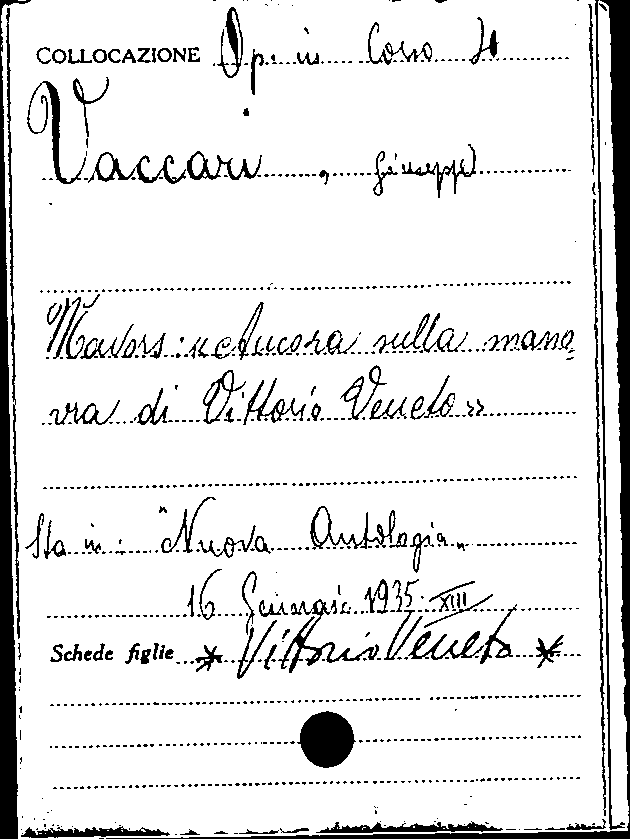 COLLOCAZIONE Op. in Corso
Vaccari, Giuseppe
Mavors: «Ancora sulla mano=
vra di Vittorio Veneto»
Sta in: "Nuova Antologia"
16 Gennaio 1935 XIII
Schede figlie * Vittorio Veneto *